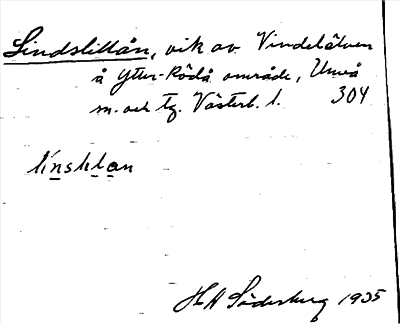 Lindslillån, vik av Vindelälven
å Ytter-Rödå område, Umeå
m. och tg. Västerb. l. 304
HA Söderberg 1935